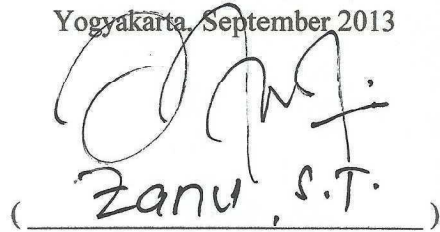 Yogyakarta, September 2013
( Zanu, S.T. )